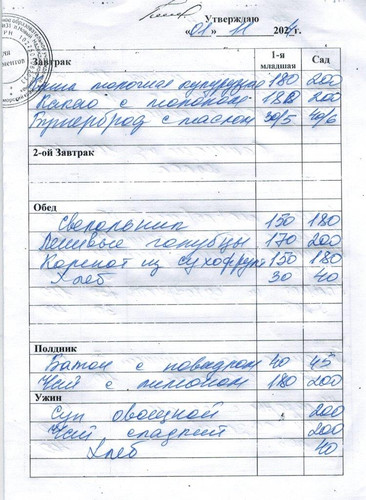 Утверждаю
«01» 11 202 г.
Завтрак 1-я младшая Сад
Каша молочная кукурузная 180 200
Какао с молоком 180 200
Бутерброд с маслом 30/5 40/6
2-ой Завтрак
Обед
Свекольник 150 180
Ленивые голубцы 170 200
Компот из сухофрукт 150 180
Хлеб 30 40
Полдник
Батон с повидлом 40 45
Чай с лимоном 180 200
Ужин
Суп овощной 200
Чай сладкий 200
Хлеб 40